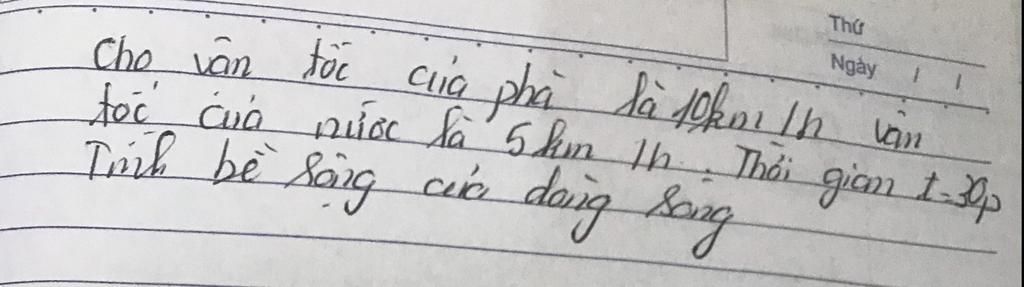 Thứ
Ngày / /
Cho vân tốc của phà là 10km/h vân
tốc của nước là 5km/h. Thời gian t=30p
Tính bề rộng của dòng sông